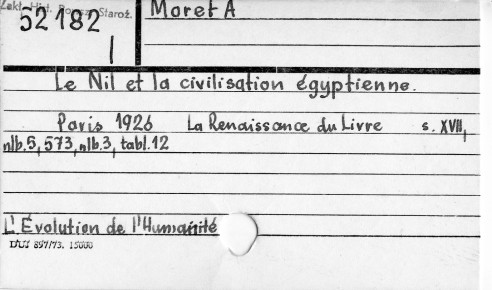 Zakł. Hist. Powsz. Staroż.
52182
I
Moret A
Le Nil et la civilisation égyptienne.
Paris 1926 La Renaissance du Livre s. XVII,
nlb.5, 573, nlb.3, tabl.12
L'Évolution de l'Humanité
DUJ 897/73. 15000